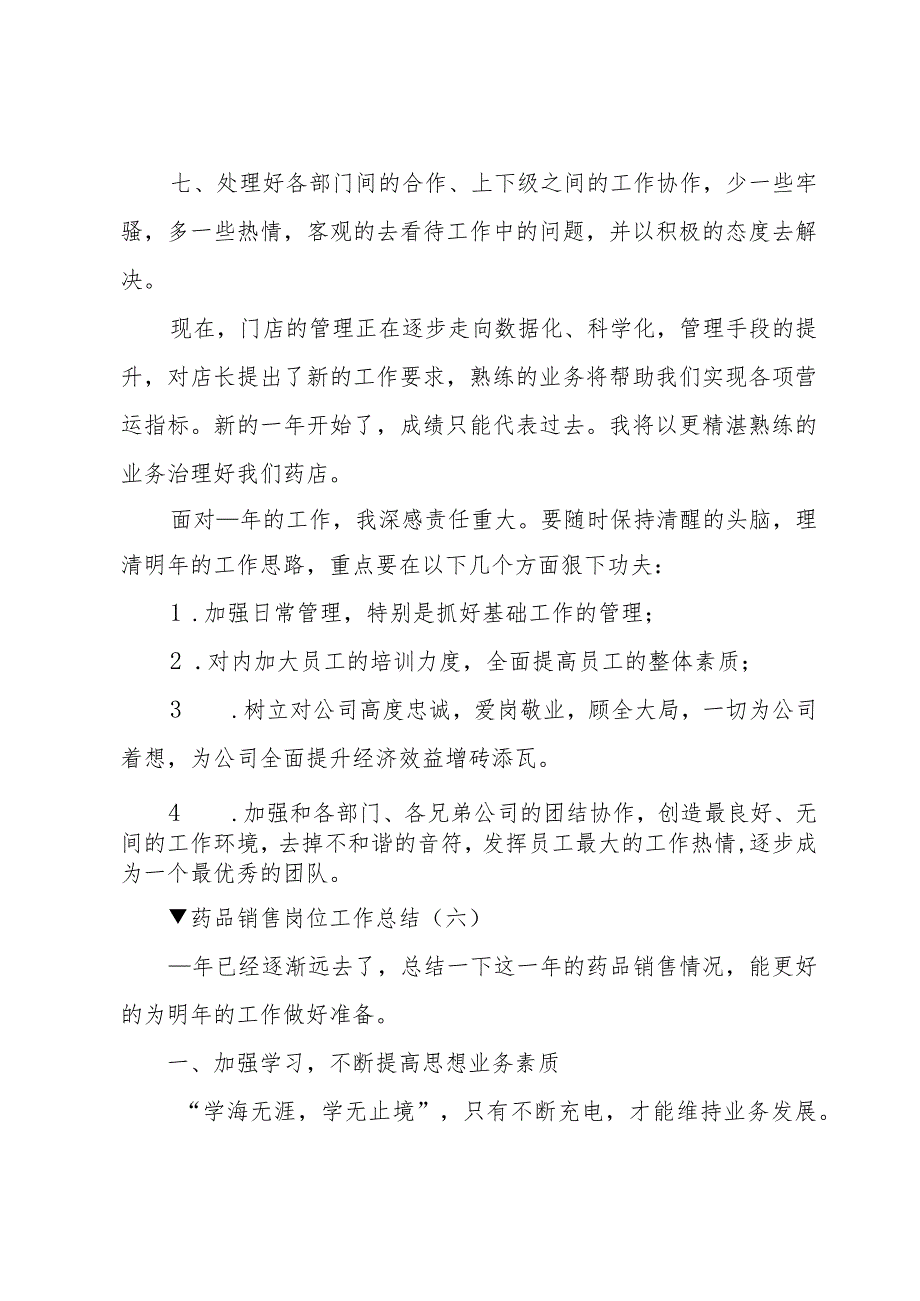 七、处理好各部门间的合作、上下级之间的工作协作，少一些牢
骚，多一些热情，客观的去看待工作中的问题，并以积极的态度去解
决。
现在，门店的管理正在逐步走向数据化、科学化，管理手段的提
升，对店长提出了新的工作要求，熟练的业务将帮助我们实现各项营
运指标。新的一年开始了，成绩只能代表过去。我将以更精湛熟练的
业务治理好我们药店。
面对—年的工作，我深感责任重大。要随时保持清醒的头脑，理
清明年的工作思路，重点要在以下几个方面狠下功夫：
1 .加强日常管理，特别是抓好基础工作的管理；
2 .对内加大员工的培训力度，全面提高员工的整体素质；
3 .树立对公司高度忠诚，爱岗敬业，顾全大局，一切为公司
着想，为公司全面提升经济效益增砖添瓦。
4 .加强和各部门、各兄弟公司的团结协作，创造最良好、无
间的工作环境，去掉不和谐的音符，发挥员工最大的工作热情,逐步成
为一个最优秀的团队。
▼药品销售岗位工作总结（六）
—年已经逐渐远去了，总结一下这一年的药品销售情况，能更好
的为明年的工作做好准备。
一、加强学习，不断提高思想业务素质
“学海无涯，学无止境”，只有不断充电，才能维持业务发展。